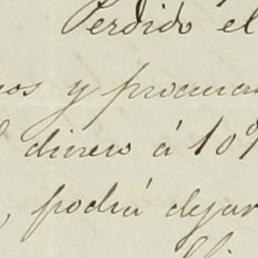 Perdido el
os y procura
dinero á 10%
, podrá dejar